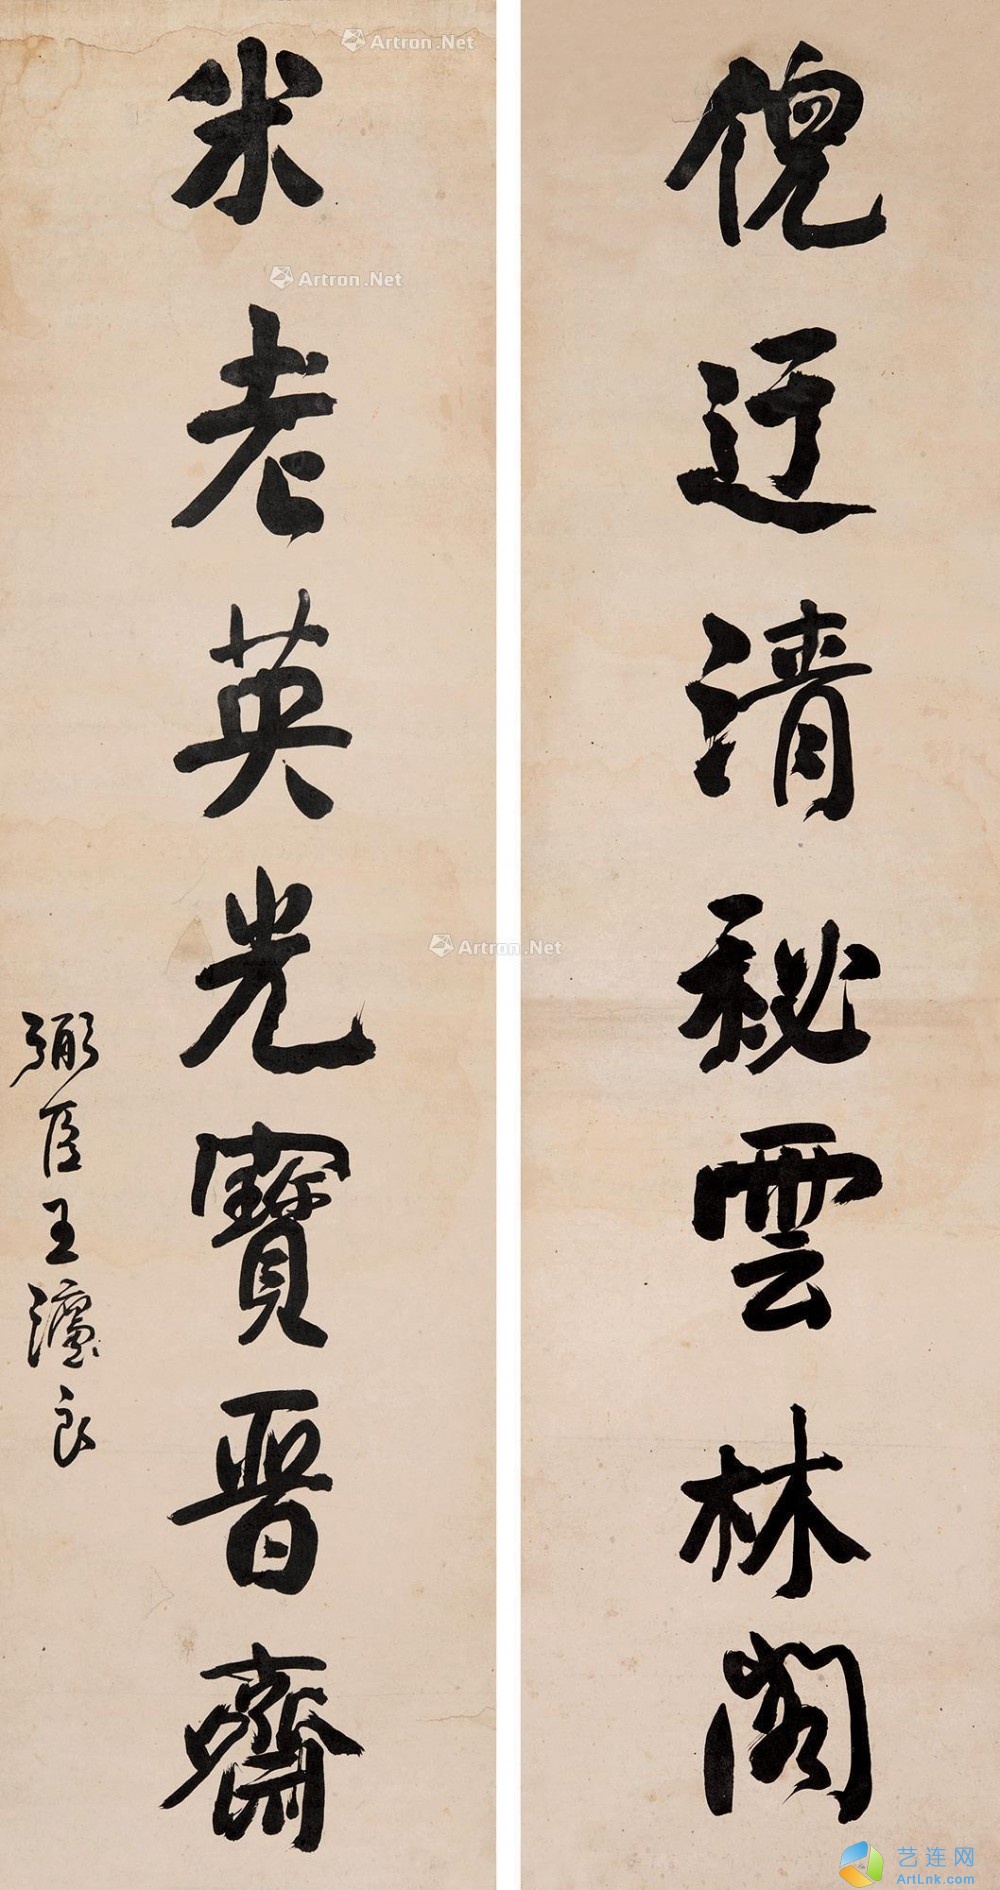 倪迂清秘雲林閣
米老英光寶晉齋
弼臣王瀘良
Artron.Net
Artron.Net
Artron.Net
艺连网
ArtLnk.com